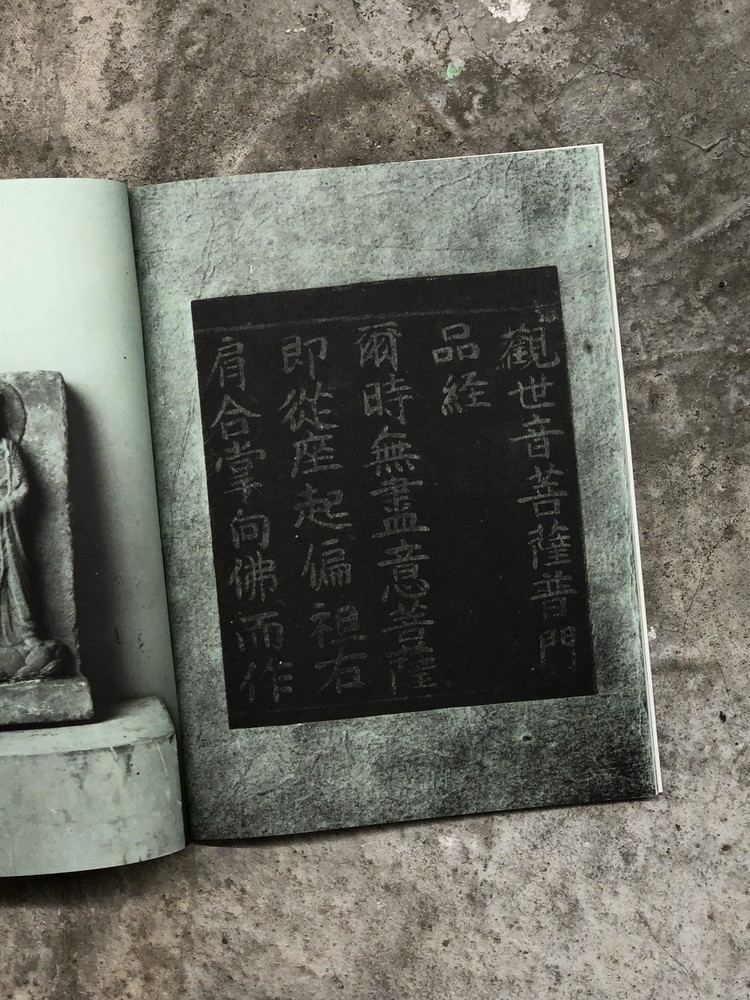 觀世音菩薩普門
品経
爾時無盡意菩薩
即從座起偏袒右
肩合掌向佛而作